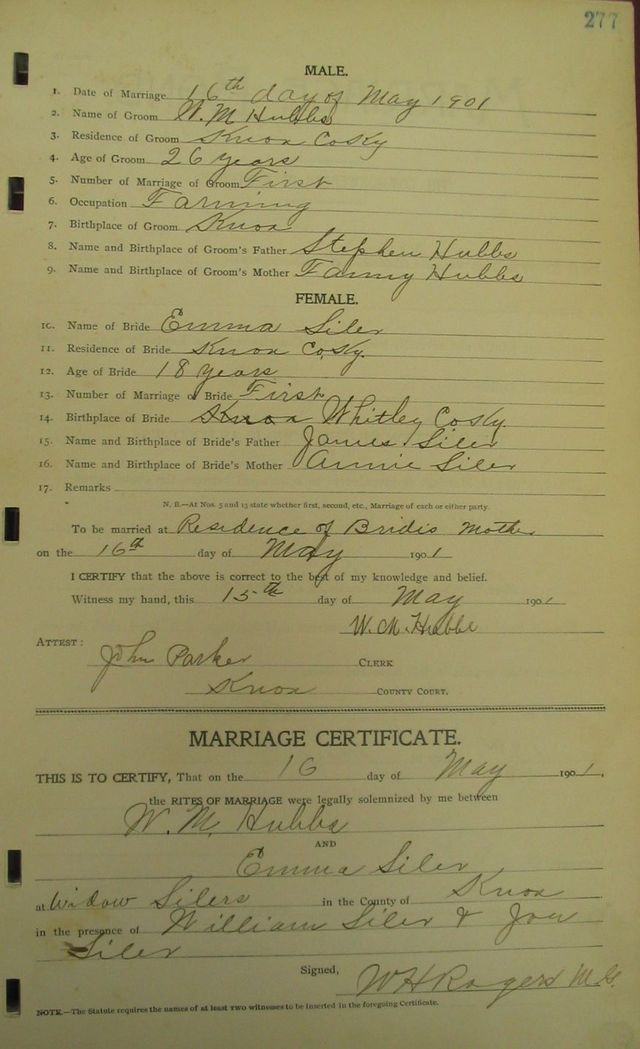 277
MALE.
1. Date of Marriage 16th day of May 1901
2. Name of Groom W. M Hubbs
3. Residence of Groom Knox Co Ky
4. Age of Groom 26 years
5. Number of Marriage of Groom First
6. Occupation Farming
7. Birthplace of Groom Knox
8. Name and Birthplace of Groom's Father Stephen Hubbs
9. Name and Birthplace of Groom's Mother Fanny Hubbs
FEMALE.
10. Name of Bride Emma Siler
11. Residence of Bride Knox Co Ky.
12. Age of Bride 18 years
13. Number of Marriage of Bride First
14. Birthplace of Bride Knox Whitley Co Ky
15. Name and Birthplace of Bride's Father James Siler
16. Name and Birthplace of Bride's Mother Annie Siler
17. Remarks
N. B.—At Nos. 5 and 13 state whether first, second, etc., Marriage of each or either party.
To be married at Residence of Brides Mother
on the 16th day of May 1901
I CERTIFY that the above is correct to the best of my knowledge and belief.
Witness my hand, this 15th day of May 1901
W. M. Hubbs
ATTEST:
John Parker CLERK
Knox COUNTY COURT.
MARRIAGE CERTIFICATE.
THIS IS TO CERTIFY, That on the 16 day of May 1901.
the RITES OF MARRIAGE were legally solemnized by me between
W. M. Hubbs
AND
Emma Siler
at Widow Silers in the County of Knox
in the presence of William Siler & Joe
Siler
Signed, W H Rogers M.G.
NOTE.—The Statute requires the names of at least two witnesses to be inserted in the foregoing Certificate.